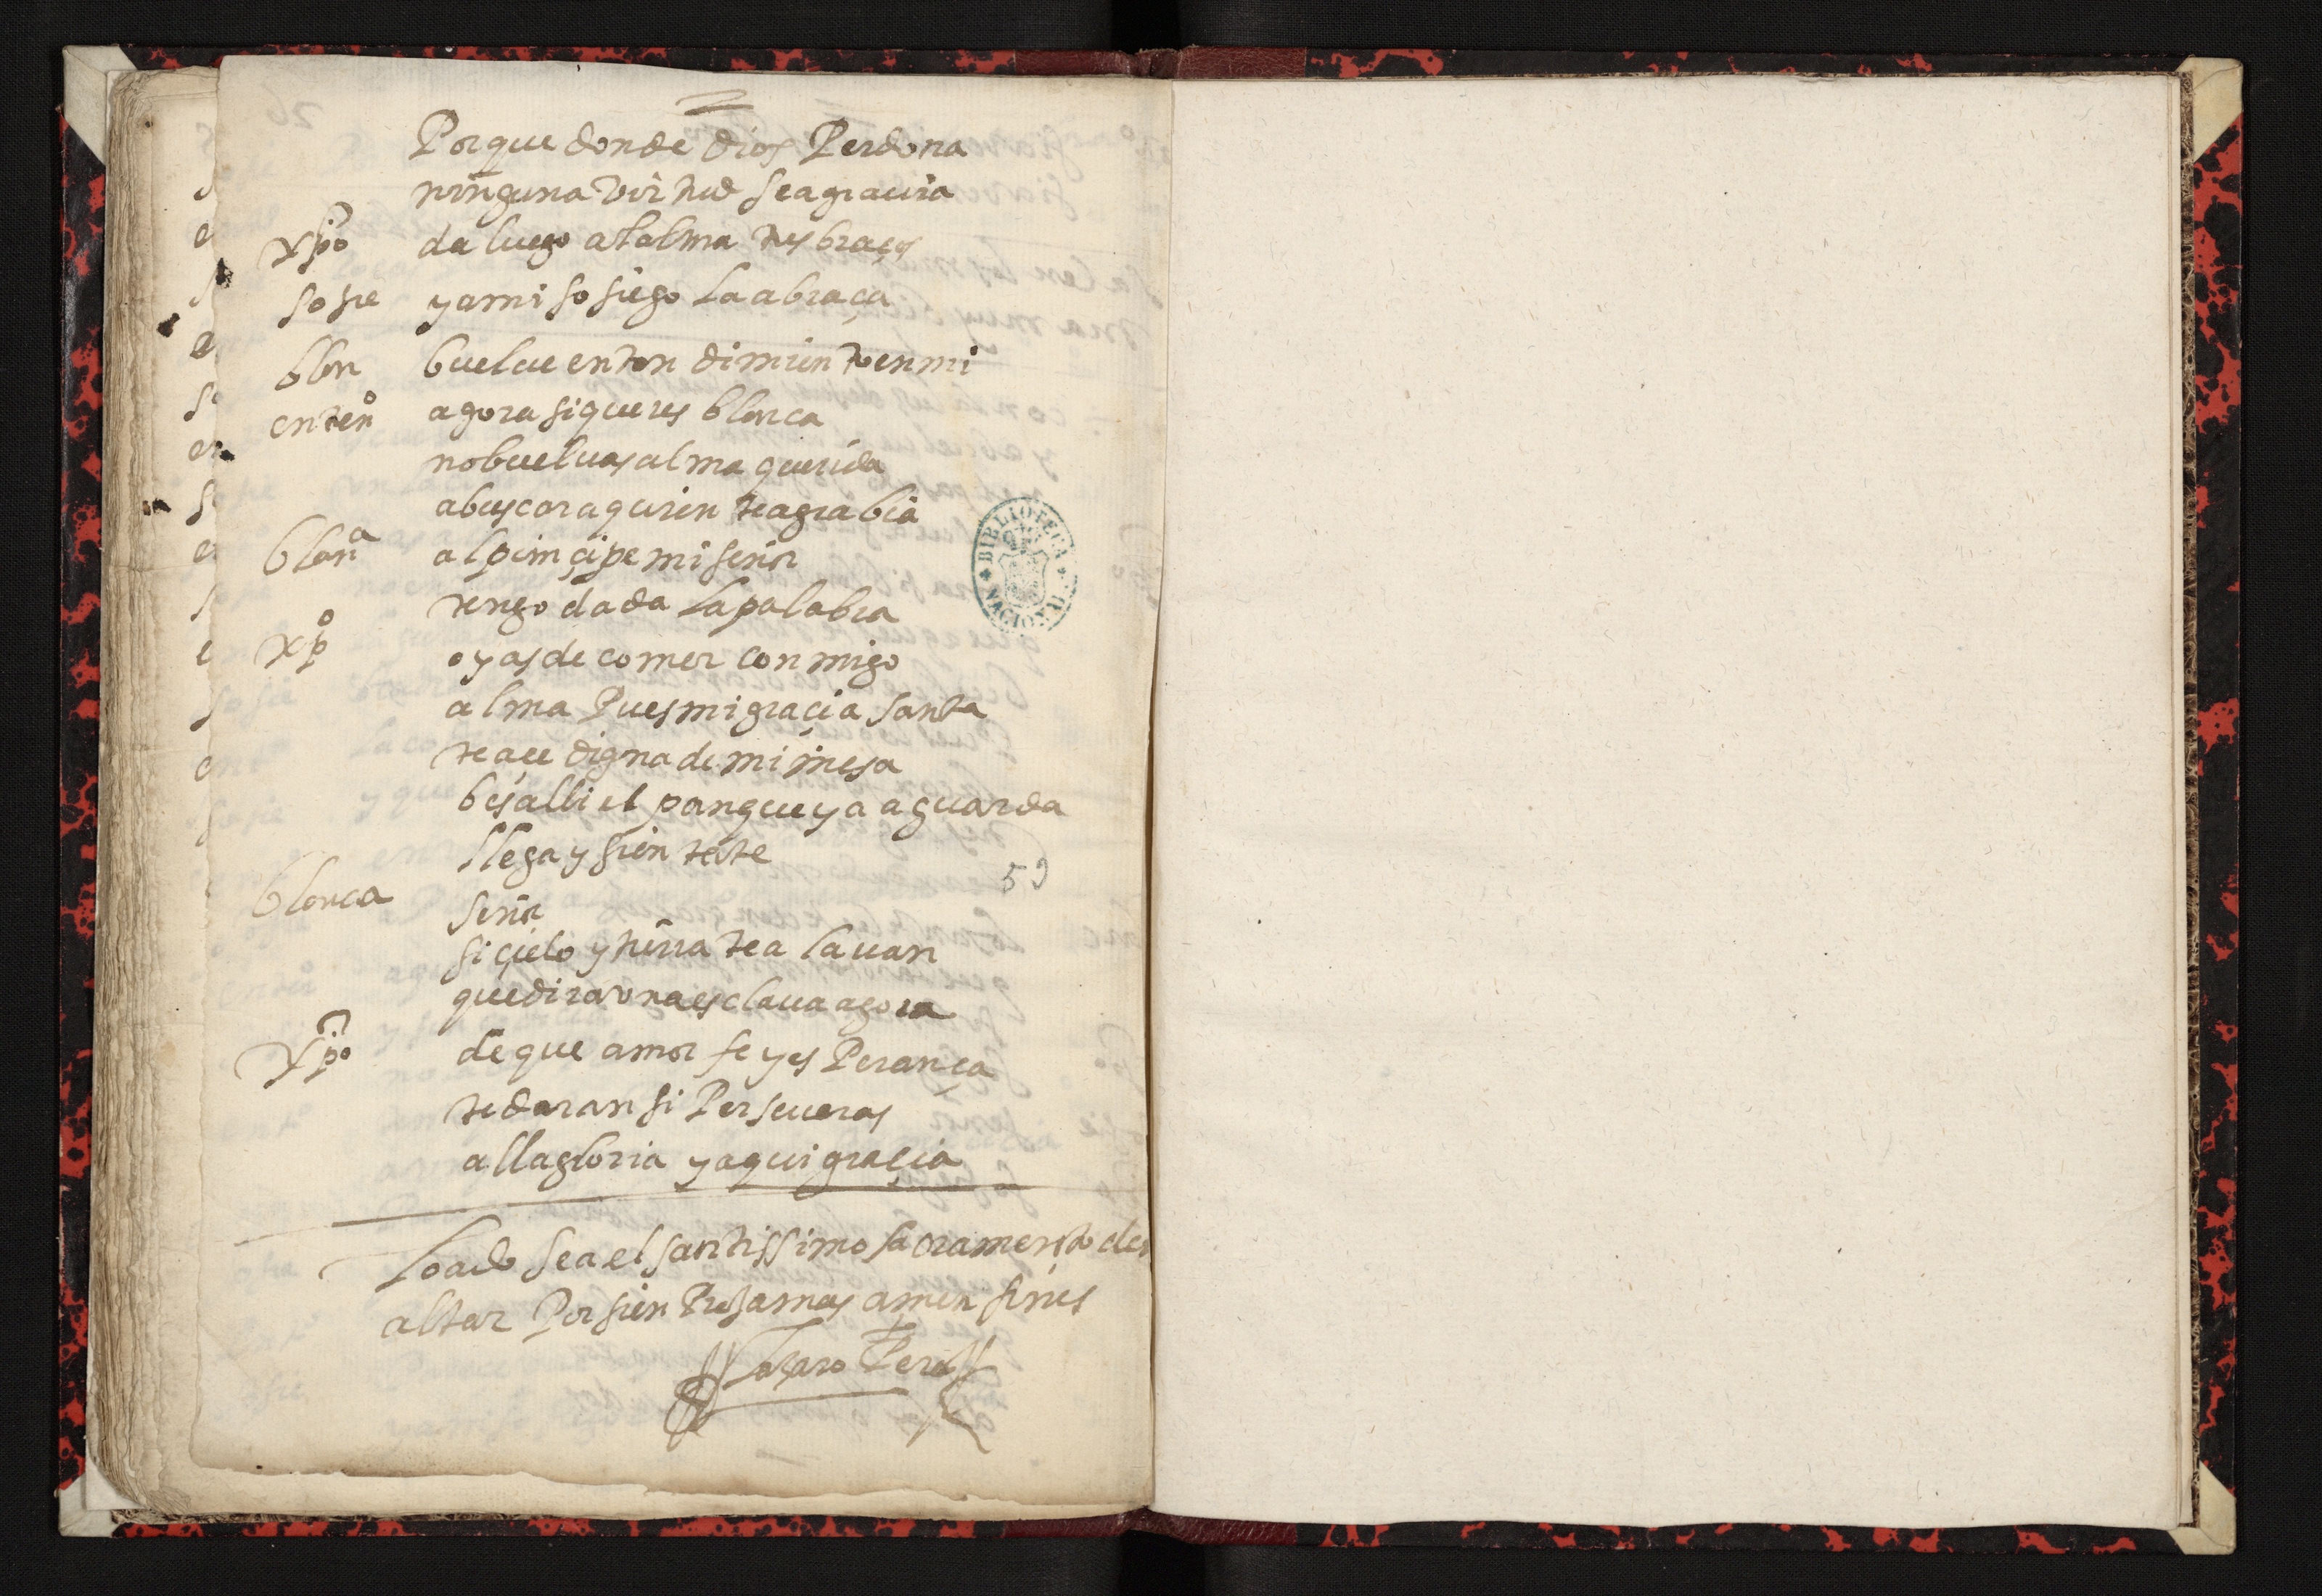 Porque donde dios Perdona
ninguna virtud se agrauia
xpo da luego al alma tus braços
sosie y a mi sosiego la abraça
blan buelue entendimiento en mi
enten° agora si queres blanca
no buelvas alma querida
a buscar a quien te agrabia
blanª al principe mi señor
tengo dada la palabra
xp° oy as de comer conmigo
alma Pues mi graçia santa
te açe digna de mi mesa
bes alli el pan que ya aguarda
llega y sientate
blanca señor
si çielo y tierra te alauan
que dira vna esclaua agora
Xpo de que amor fe y esPerança
te daran si Perseueras
alla gloria y aqui graçia
Loado sea el santissimo sacramento del
altar Por sien Pre jamas amen finis
Laçaro Perez
59
BIBLIOTECA NACIONAL